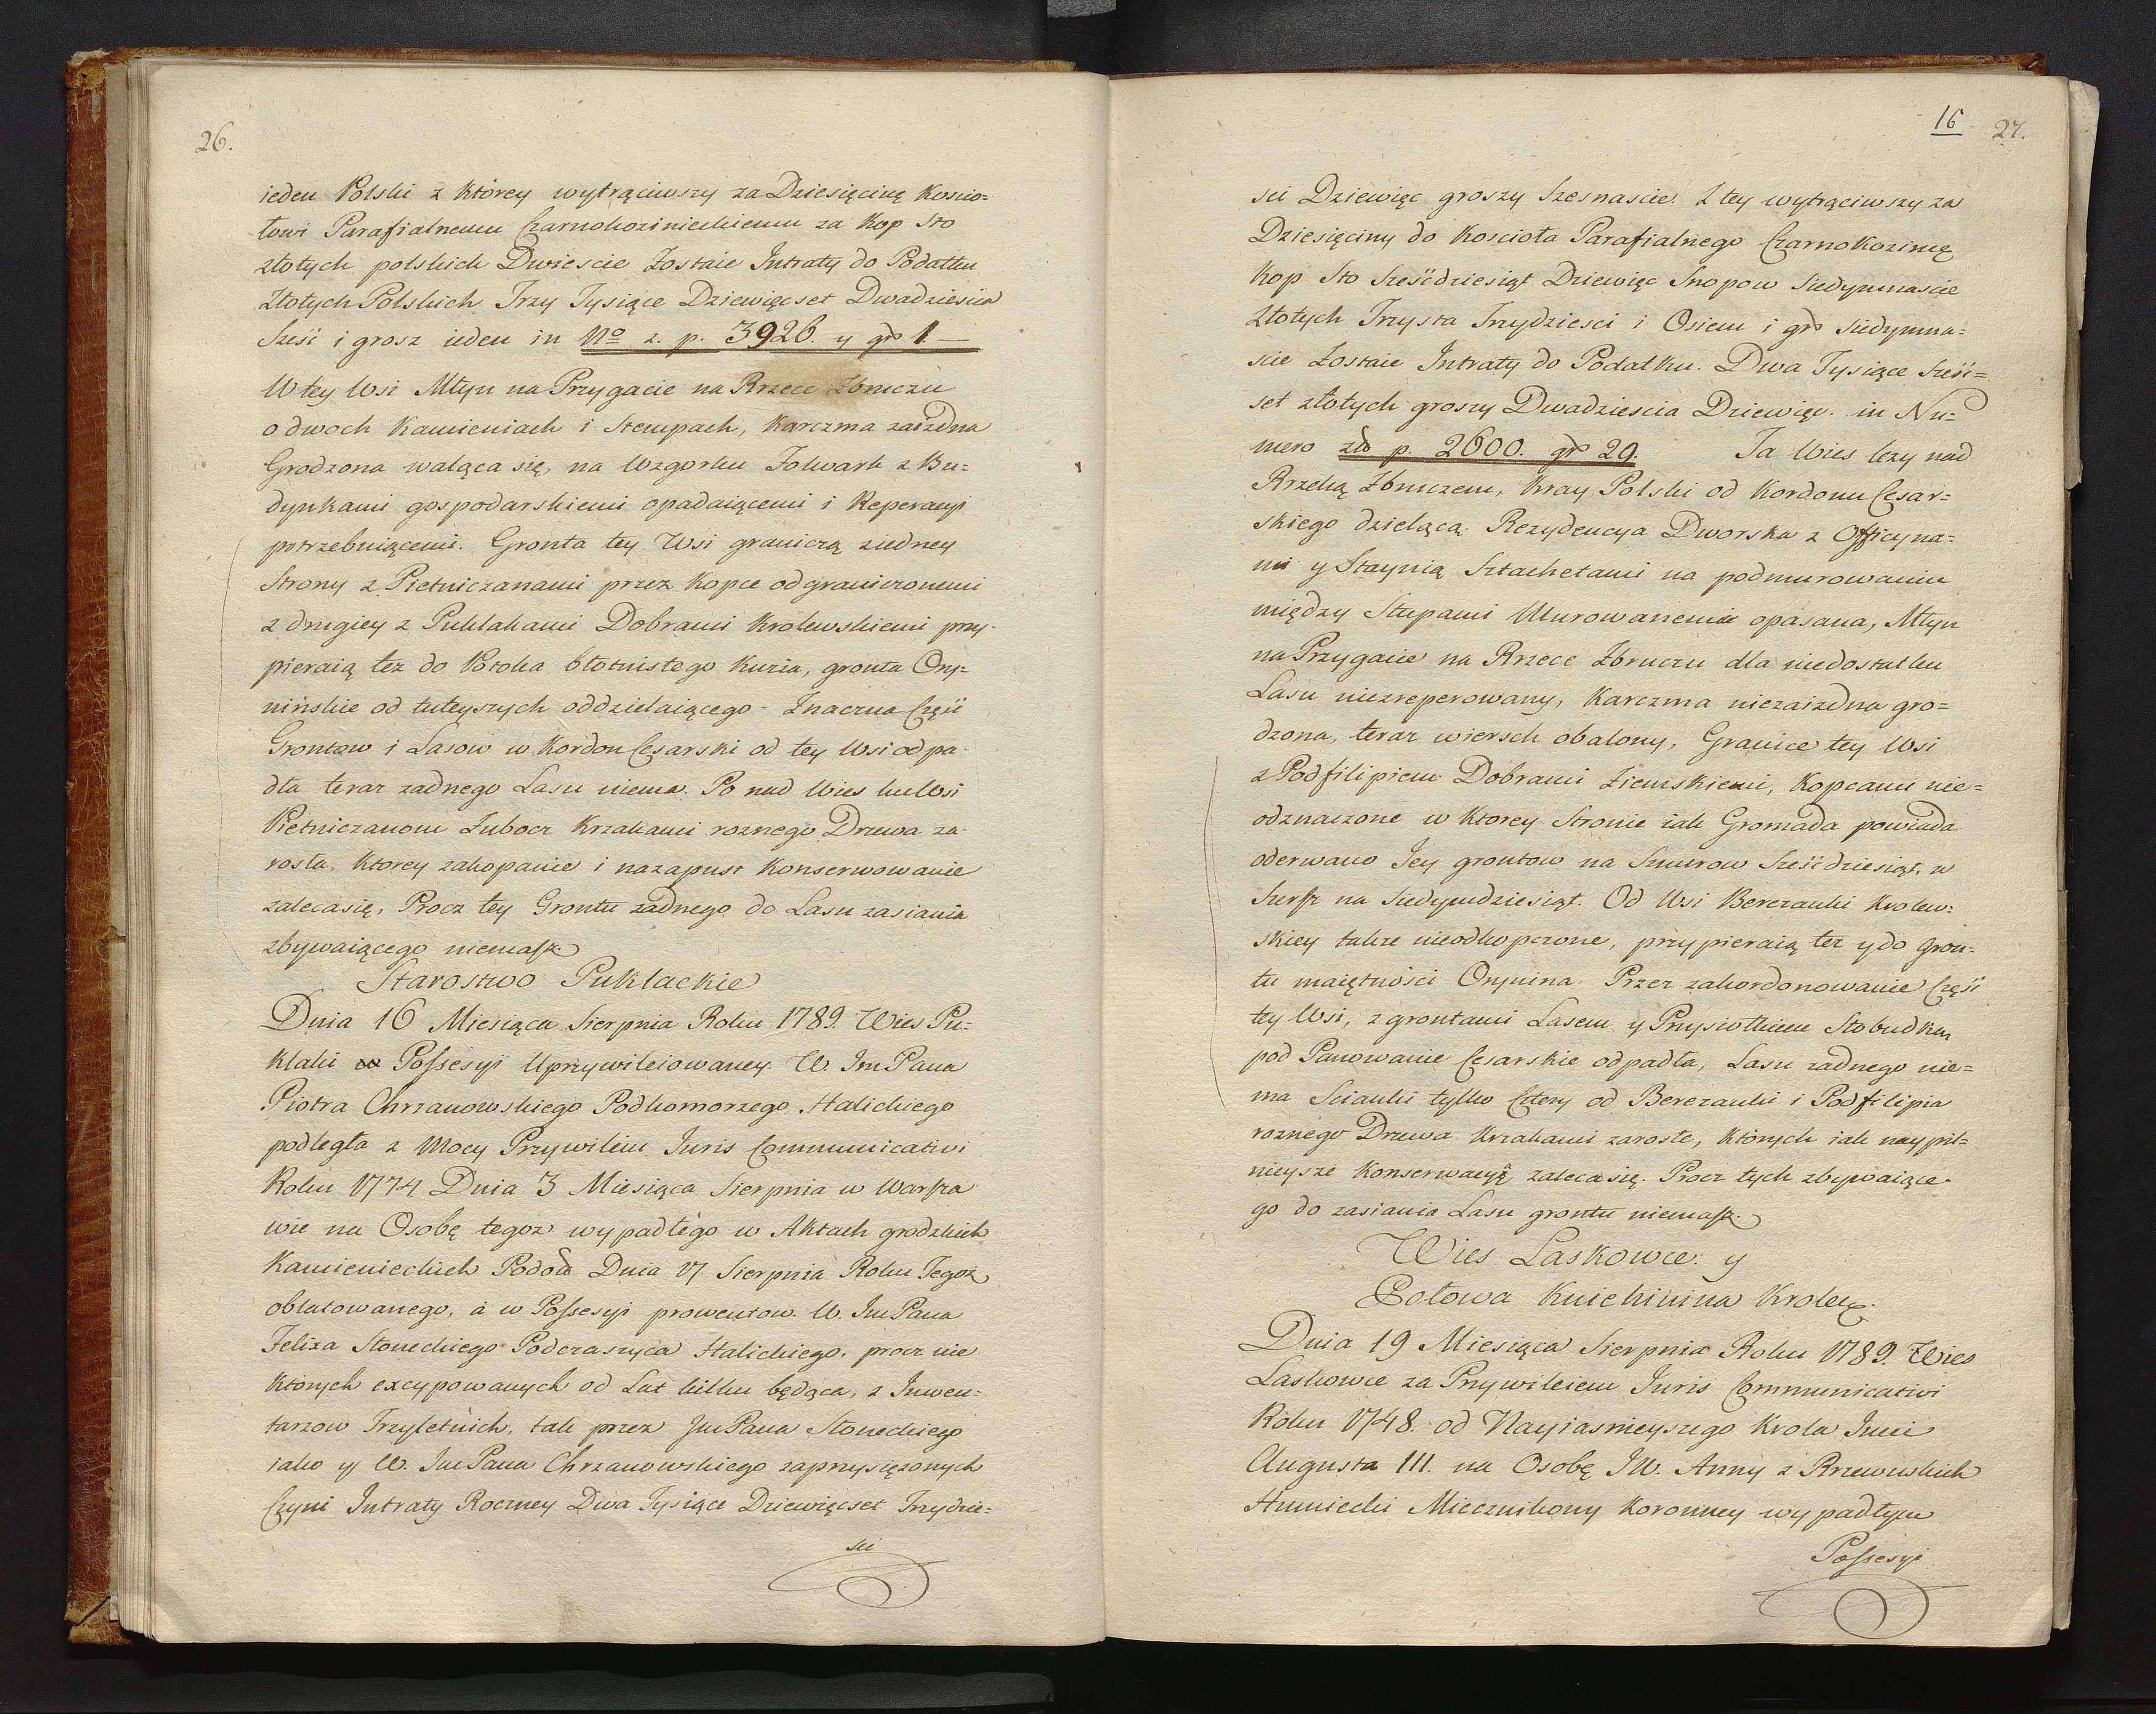 26.
ieden Polski z ktorey wytrąciwszy za Dziesięcinę Koscio=
łowi Parafialnemu Czarnokozinieckiemu za Kop Sto
złotych polskich Dwiescie Zostaie Intraty do Podatku
Złotych Polskich Trzy Tysiące Dziewięcset Dwadziescia
Szesć i grosz ieden in No z. p. 3926. y gr 1. —
W tey Wsi Młyn na Przygacie na Rzece Zbruczu
o dwoch Kamieniach i Stempach, Karczma zaiezdna
Grodzona waląca się, na Wzgorku Folwark z Bu=
dynkami gospodarskiemi opadaiącemi i Reperacyi
potrzebuiącemi. Gronta tey Wsi graniczą z iedney
Strony z Pietniczanami przez Kopce odgraniczonemi
z drugiey z Puklakami Dobrami Krolewskiemi przy-
pieraią tez do Potoka błotnistego Kuzia, gronta Ory=
ninskie od tuteyszych oddzielaiącego - Znaczna Częsć
Grontow i Lasow w Kordon Cesarski od tey Wsi odpa-
dła teraz zadnego Lasu niema. Po nad Wies ku Wsi
Pietniczanom Zubocz Krzakami roznego Drzewa za-
rosła, Ktorey zakopanie i na zapust Konserwowanie
zaleca się, Procz tey Grontu zadnego do Lasu zasiania
zbywaiącego niemasz
Starostwo Puklackie
Dnia 16 Miesiąca Sierpnia Roku 1789. Wies Pu=
klaki w Possesyi Uprzywileiowaney. W. Jm Pana
Piotra Chrzanowskiego Podkomorzego Halickiego
podległa z Mocy Przywileiu Juris Communicativi
Roku 1774 Dnia 3 Miesiąca Sierpnia w Warsza
wie na Osobę tegoz wypadłego w Aktach grodzkich
Kamienieckich Podol Dnia 17 Sierpnia Roku Tegoz
oblatowanego, a w Possesyi prowentow. W. Jm Pana
Felixa Słoneckiego Podczaszyca Halickiego, procz nie
ktorych excypowanych od Lat kilku będąca, z Inwen=
tarzow Trzyletnich, tak przez Jm Pana Słoneckiego
iako y W. Jm Pana Chrzanowskiego zaprzysięzonych
Czyni Intraty Roczney Dwa Tysiące Dziewięcset Trzydzie=
sci
16 27.
sci Dziewięc groszy Szesnascie. Z tey wytrąciwszy za
Dziesięciny do Koscioła Parafialnego Czarno Kozinię
Kop Sto Szescdziesiąt Dziewięc Snopow Siedymnascie
Złotych Trzysta Trzydziesci i Osiem i gr Siedymna=
scie Zostaie Intraty do Podatku. Dwa Tysiące Szesc=
set złotych groszy Dwadziescia Dziewięc. in Nu=
mero zł p. 2600. gr 29. Ta Wies lezy nad
Rzeką Zbruczem, Kray Polski od Kordonu Cesar=
skiego dzielącą. Rezydencya Dworska z Officyna=
mi y Staynią Sztachetami na podmurowaniu
między Słupami Murowanemi opasana, Młyn
na Przygacie na Rzece Zbruczu dla niedostatku
Lasu niezreperowany, Karczma niezaiezdna gro=
dzona, teraz wiersch obalony, Granice tey Wsi
z Podfilipiem Dobrami Ziemskiemi, Kopcami nie=
odznaczone w Ktorey Stronie iak Gromada powiada
oderwano Jey grontow na Sznurow Szescdziesiąt, w
Szersz na Siedymdziesiąt. Od Wsi Berezanki Krolew=
skiey takze nieodkopczone, przypieraią tez y do Gron=
tu maiętności Orynina. Przez zakordonowanie Częsc
tey Wsi, z grontami Lasem y Przysiołkiem Stobudka
pod Panowanie Cesarskie odpadła, Lasu zadnego nie=
ma Scianki tylko Cztery od Berezanki i Podfilipia
roznego Drzewa Krzakami zarosłe, Ktorych iak naypil=
nieysze Konserwacyę zaleca się. Procz tych zbywaiące-
go do zasiania Lasu grontu niemasz.
Wies Laskowce. y
Połowa Kuichinina Krolew.
Dnia 19 Miesiąca Sierpnia Roku 1789. Wies
Laskowce za Przywileiem Juris Communicativi
Roku 1748. od Nayiasnieyszego Krola Jmci
Augusta III. na Osobę JW. Anny z Rzewuskich
Humiecki Miecznikowy Koronney wypadłym
Possesyi